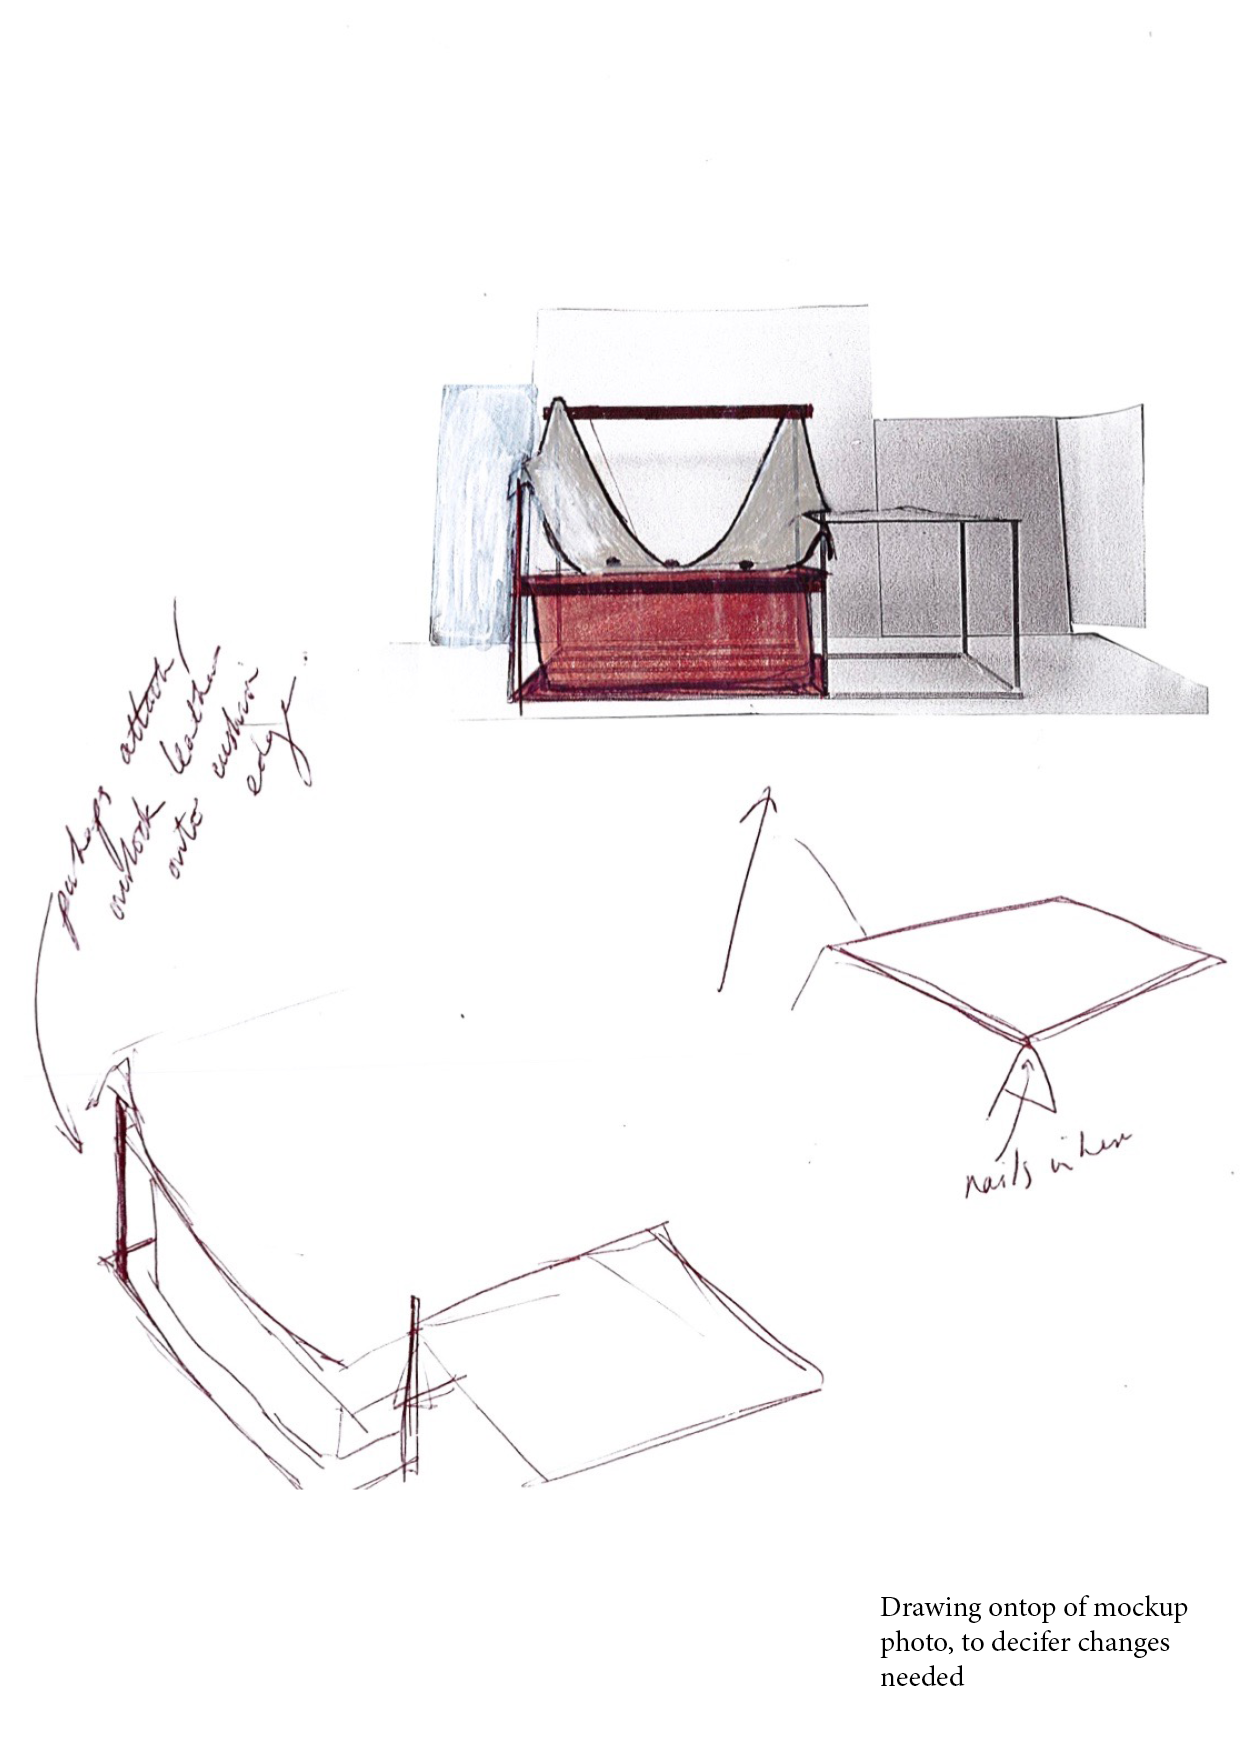 perhaps attach/
overlock leather
onto cushion
edge
nails in here
Drawing ontop of mockup
photo, to decifer changes
needed